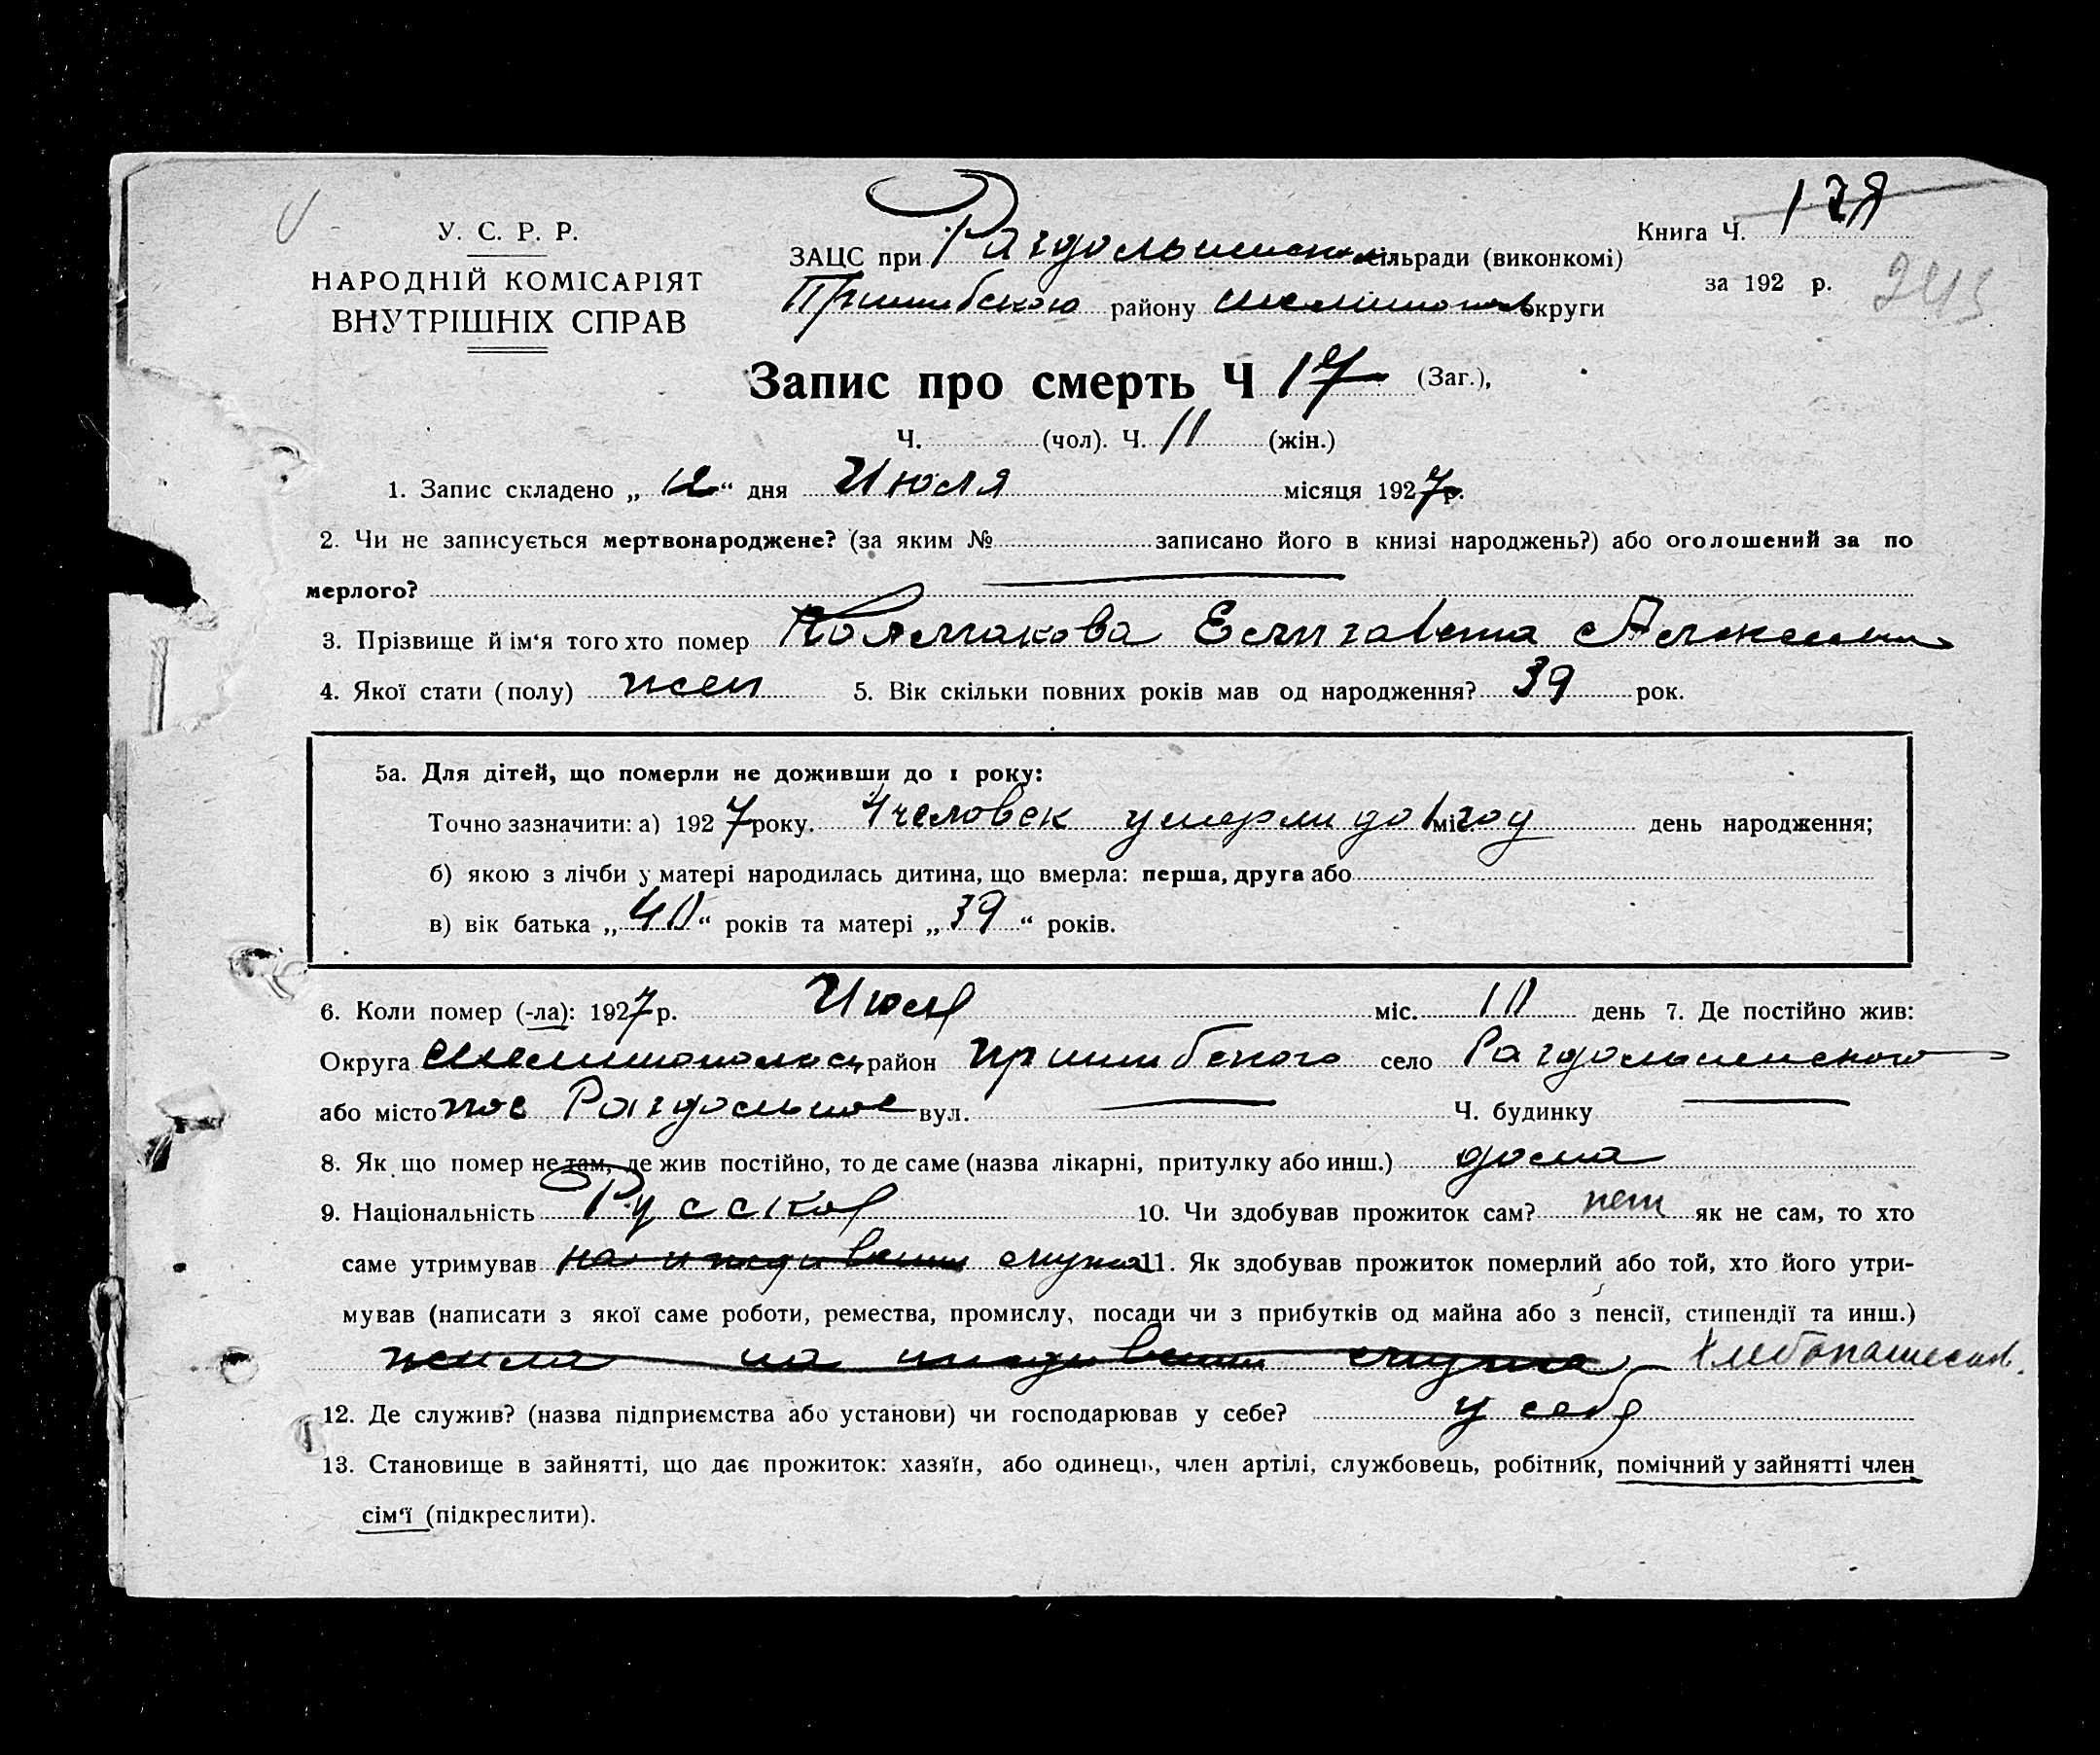 У. С. Р. Р.
НАРОДНІЙ КОМІСАРІЯТ
ВНУТРІШНІХ СПРАВ
ЗАЦС при Раздольненск сільради (виконкомі)
Пришибского району Мелитополь округи
Книга Ч. 178
за 192 р.
Запис про смерть Ч 17 (Заг.),
Ч. (чол). Ч. 11 (жін.)
1. Запис складено „ 12 “ дня Июля місяця 1927 р.
2. Чи не записується мертвонароджене? (за яким № записано його в книзі народжень?) або оголошений за по
мерлого?
3. Прізвище й ім‘я того хто помер Колмакова Елизавета
4. Якої стати (полу) жен 5. Вік скільки повних років мав од народження? 39 рок.
5а. Для дітей, що померли не доживши до 1 року:
Точно зазначити: а) 1927 року. 4 человек умерли до 1 году міс. день народження;
б) якою з лічби у матері народилась дитина, що вмерла: перша, друга або
в) вік батька „ 40 “ років та матері „ 39 “ років.
6. Коли помер (-ла): 1927 р. Июля міс. 10 день 7. Де постійно жив:
Округа район Пришибского село Раздольненского
або місто пос Раздольное вул. Ч. будинку
8. Як що помер не там, де жив постійно, то де саме (назва лікарні, притулку або инш.) дома
9. Національність Русская 10. Чи здобував прожиток сам? нет як не сам, то хто
саме утримував на иждивении мужа 11. Як здобував прожиток померлий або той, хто його утри-
мував (написати з якої саме роботи, ремества, промислу, посади чи з прибутків од майна або з пенсії, стипендії та инш.)
жила на иждивении мужа
12. Де служив? (назва підприємства або установи) чи господарював у себе? у себя
13. Становище в зайнятті, що дає прожиток: хазяїн, або одинець, член артілі, службовець, робітник, помічний у зайнятті член
сім‘ї (підкреслити).